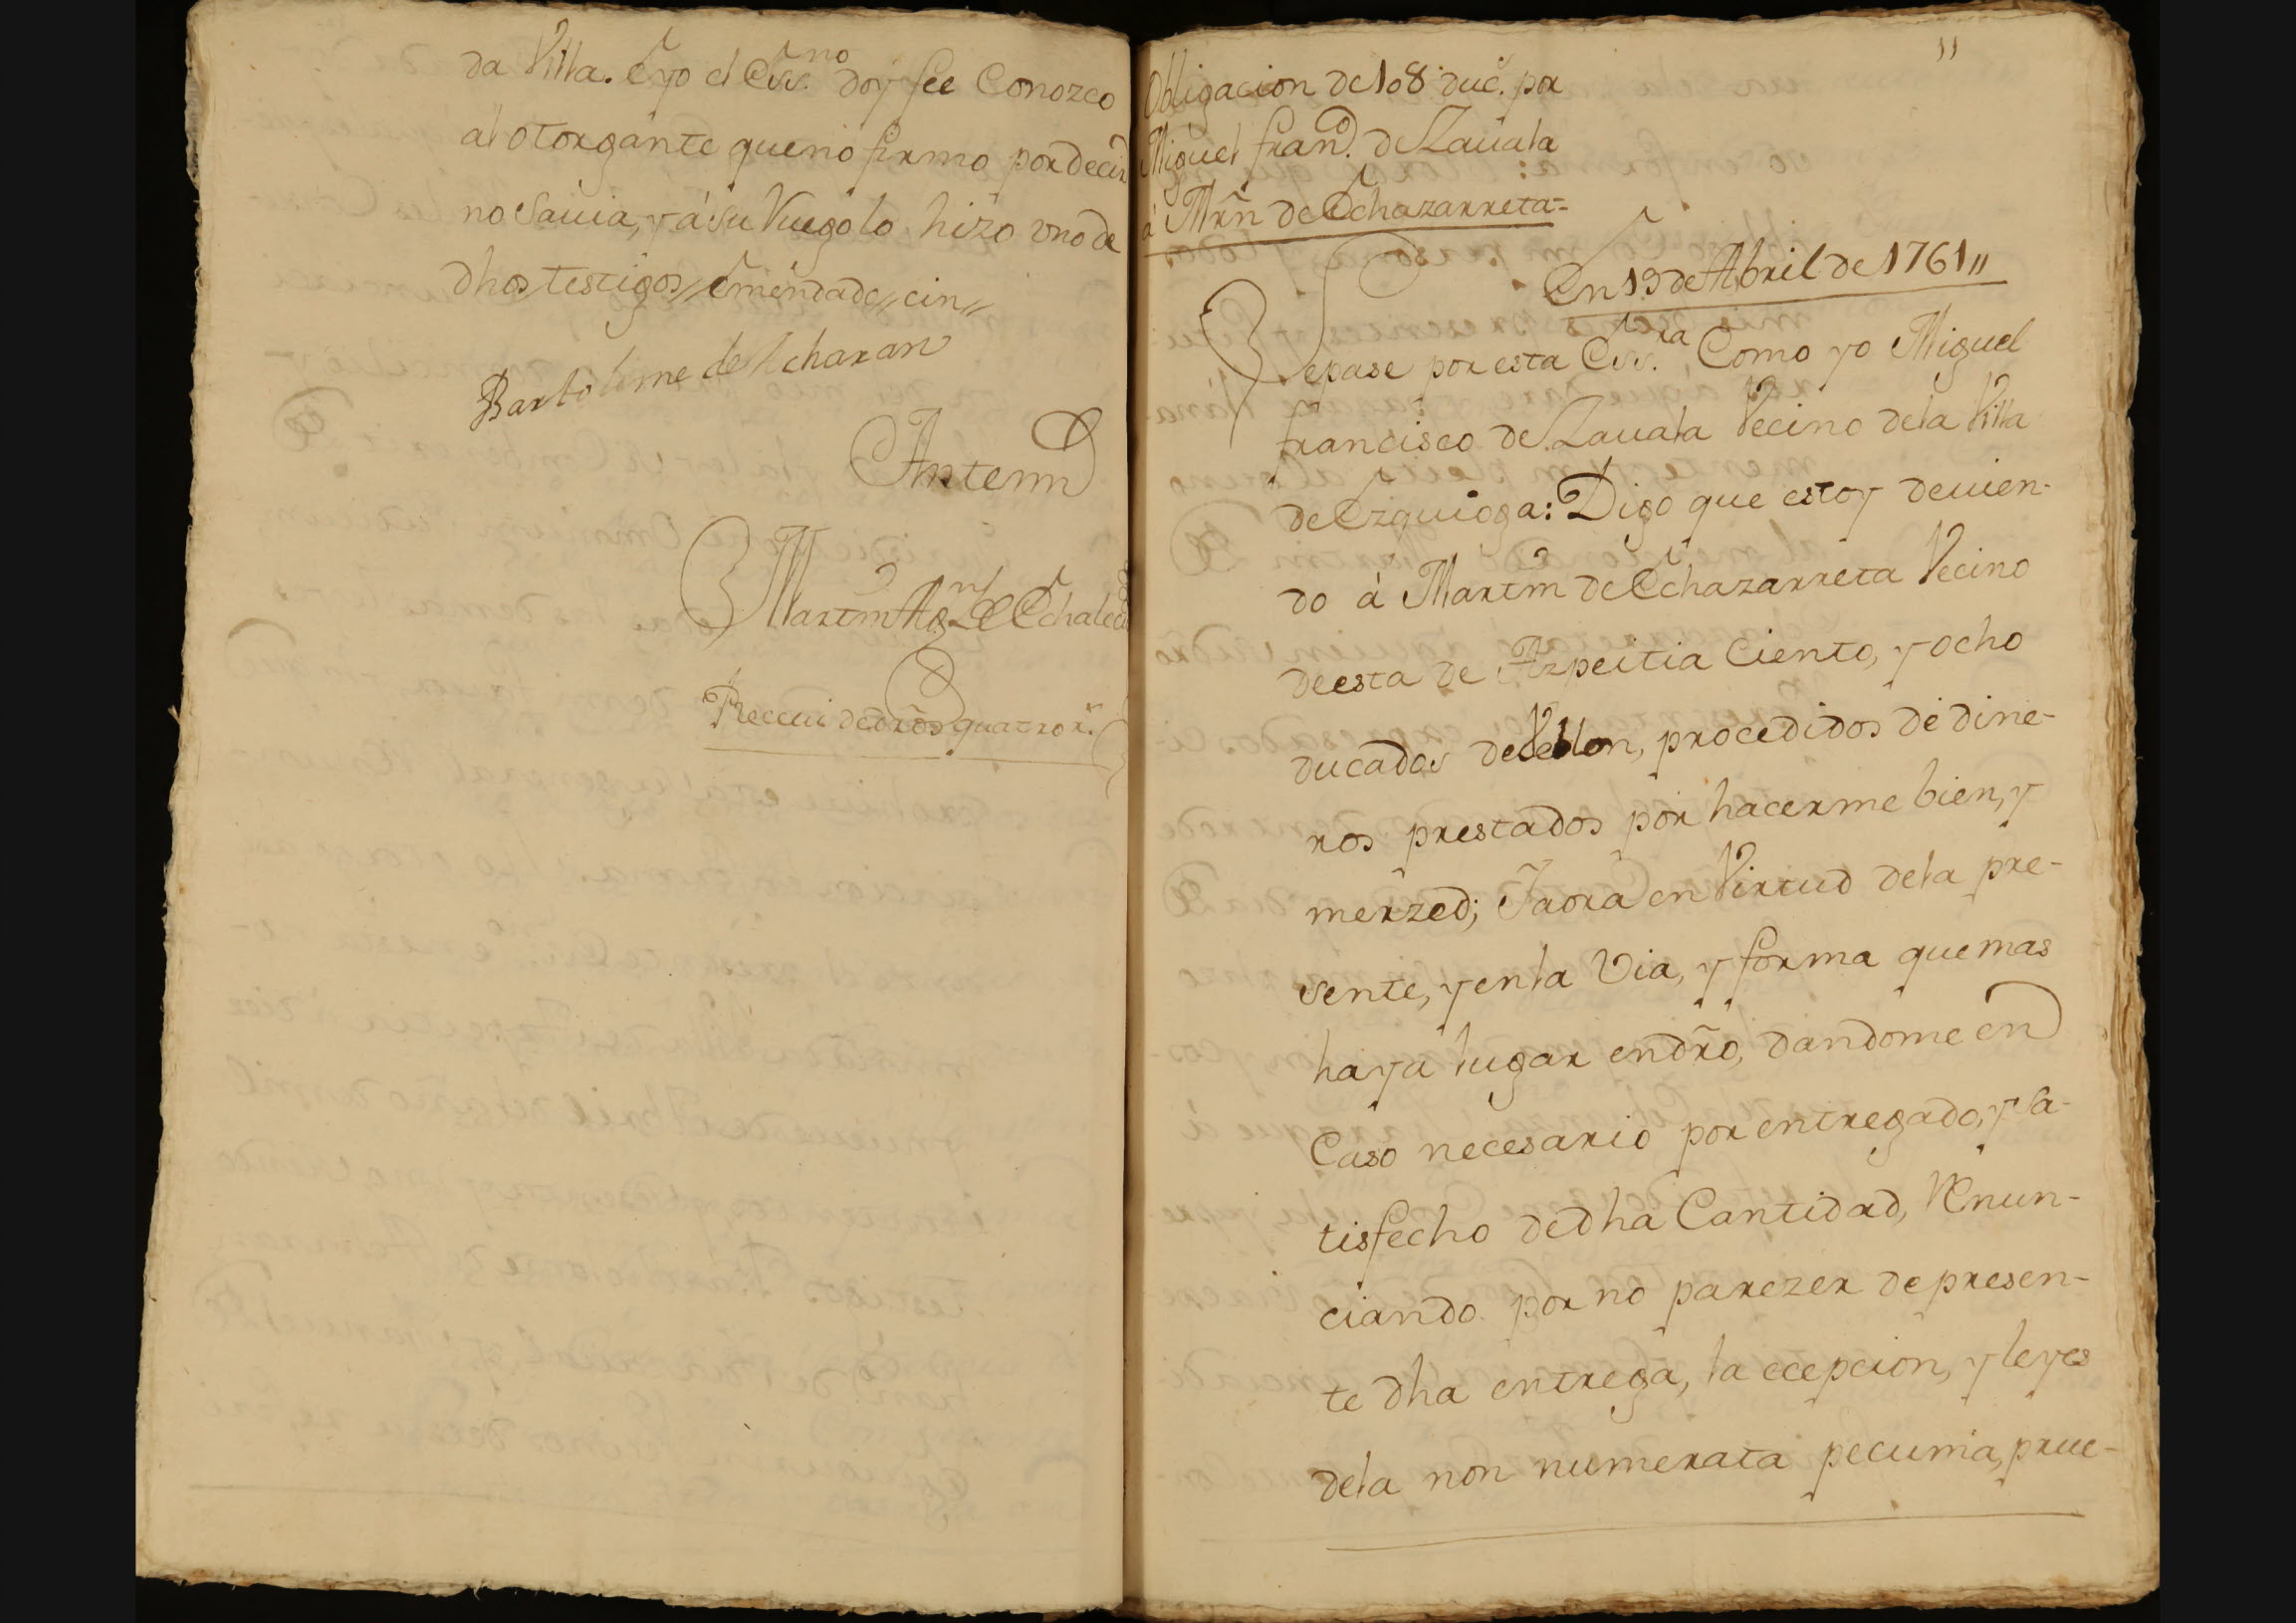 da Villa. e yo el Ess.no doy fee Conozco
al otorgante que no firmo por decir
no Sauia, y á su Ruego lo hizo vno de
dhos testigos // emendado // cin //
Bartolome de Acharan
Antemi
Martin Ag.nl de Echalecu
Receui de dr̃os quatro r.s
11
Obligacion de 108 duc.s por
Miguel fran.co de Zauala
á Mrñ de Echazarreta =
En 19 de Abril de 1761 //
Sepase por esta Ess.ra Como yo Miguel
francisco de Zauala Vecino dela Villa
de Ezquioga: Digo que estoy deuien-
do á Martin de Echazarreta Vecino
de esta de Azpeitia Ciento, y ocho
ducados de Vellon, procedidos de dine-
ros prestados por hacerme bien, y
merzed; Y aora en Virtud dela pre-
sente, y enla Via, y forma que mas
haya lugar en dr̃o, dandome en
Caso necesario por entregado, y sa-
tisfecho de dha Cantidad, Renun-
ciando por no parezer de presen-
te dha entrega, la ecepcion, y leyes
dela non numerata pecunia, prue-